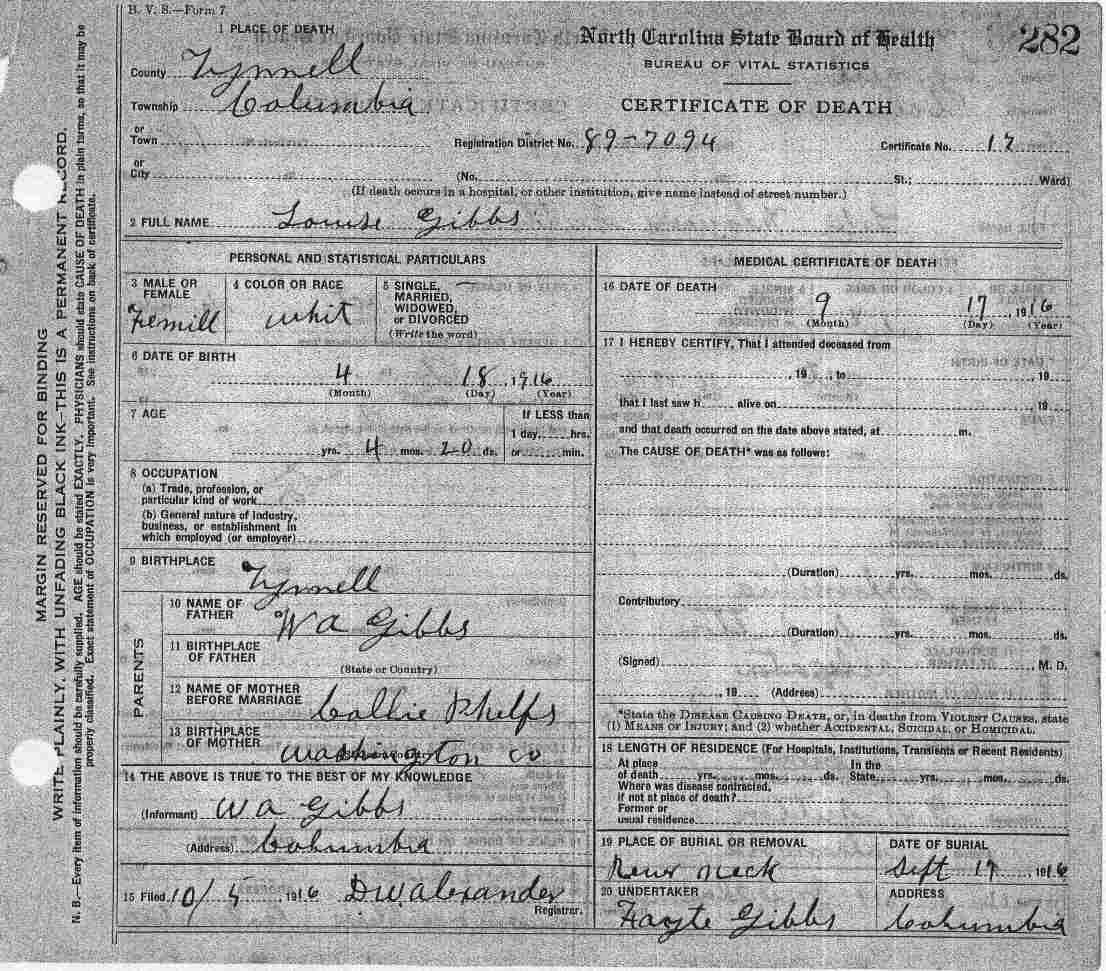 B. V. S.—Form 7
1 PLACE OF DEATH
North Carolina State Board of Health
282
BUREAU OF VITAL STATISTICS
CERTIFICATE OF DEATH
County Tyrrell
Township Columbia
or Town
Registration District No. 89-7094
Certificate No. 17
or City
(No. St.; Ward)
(If death occurs in a hospital, or other institution, give name instead of street number.)
2 FULL NAME Louise Gibbs
PERSONAL AND STATISTICAL PARTICULARS
3 MALE OR FEMALE Femill
4 COLOR OR RACE whit
5 SINGLE, MARRIED, WIDOWED, or DIVORCED
(Write the word)
6 DATE OF BIRTH
4 18, 1916
(Month) (Day) (Year)
7 AGE
If LESS than
1 day, hrs.
yrs. 4 mos. 20 ds. or min.
8 OCCUPATION
(a) Trade, profession, or
particular kind of work
(b) General nature of industry,
business, or establishment in
which employed (or employer)
9 BIRTHPLACE
Tyrrell
PARENTS
10 NAME OF FATHER W A Gibbs
11 BIRTHPLACE OF FATHER
(State or Country)
12 NAME OF MOTHER BEFORE MARRIAGE Collie Phelps
13 BIRTHPLACE OF MOTHER Washington Co
14 THE ABOVE IS TRUE TO THE BEST OF MY KNOWLEDGE
(Informant) W A Gibbs
(Address) Columbia
15 Filed 10/5, 1916 D W Alexander
Registrar.
MEDICAL CERTIFICATE OF DEATH
16 DATE OF DEATH
9 17, 1916
(Month) (Day) (Year)
17 I HEREBY CERTIFY, That I attended deceased from
, 19 , to , 19
that I last saw h alive on , 19
and that death occurred on the date above stated, at m.
The CAUSE OF DEATH* was as follows:
(Duration) yrs. mos. ds.
Contributory
(Duration) yrs. mos. ds.
(Signed) , M. D.
19 (Address)
*State the DISEASE CAUSING DEATH, or, in deaths from VIOLENT CAUSES, state
(1) MEANS OF INJURY; and (2) whether ACCIDENTAL, SUICIDAL, or HOMICIDAL.
18 LENGTH OF RESIDENCE (For Hospitals, Institutions, Transients or Recent Residents)
At place In the
of death yrs. mos. ds. State yrs. mos. ds.
Where was disease contracted,
if not at place of death?
Former or
usual residence
19 PLACE OF BURIAL OR REMOVAL
DATE OF BURIAL
Neck
Sept 17, 1916
20 UNDERTAKER
ADDRESS
Gibbs
Columbia
MARGIN RESERVED FOR BINDING
WRITE PLAINLY, WITH UNFADING BLACK INK—THIS IS A PERMANENT RECORD.
N. B.—Every item of information should be carefully supplied. AGE should be stated EXACTLY. PHYSICIANS should state CAUSE OF DEATH in plain terms, so that it may be
properly classified. Exact statement of OCCUPATION is very important. See instructions on back of certificate.